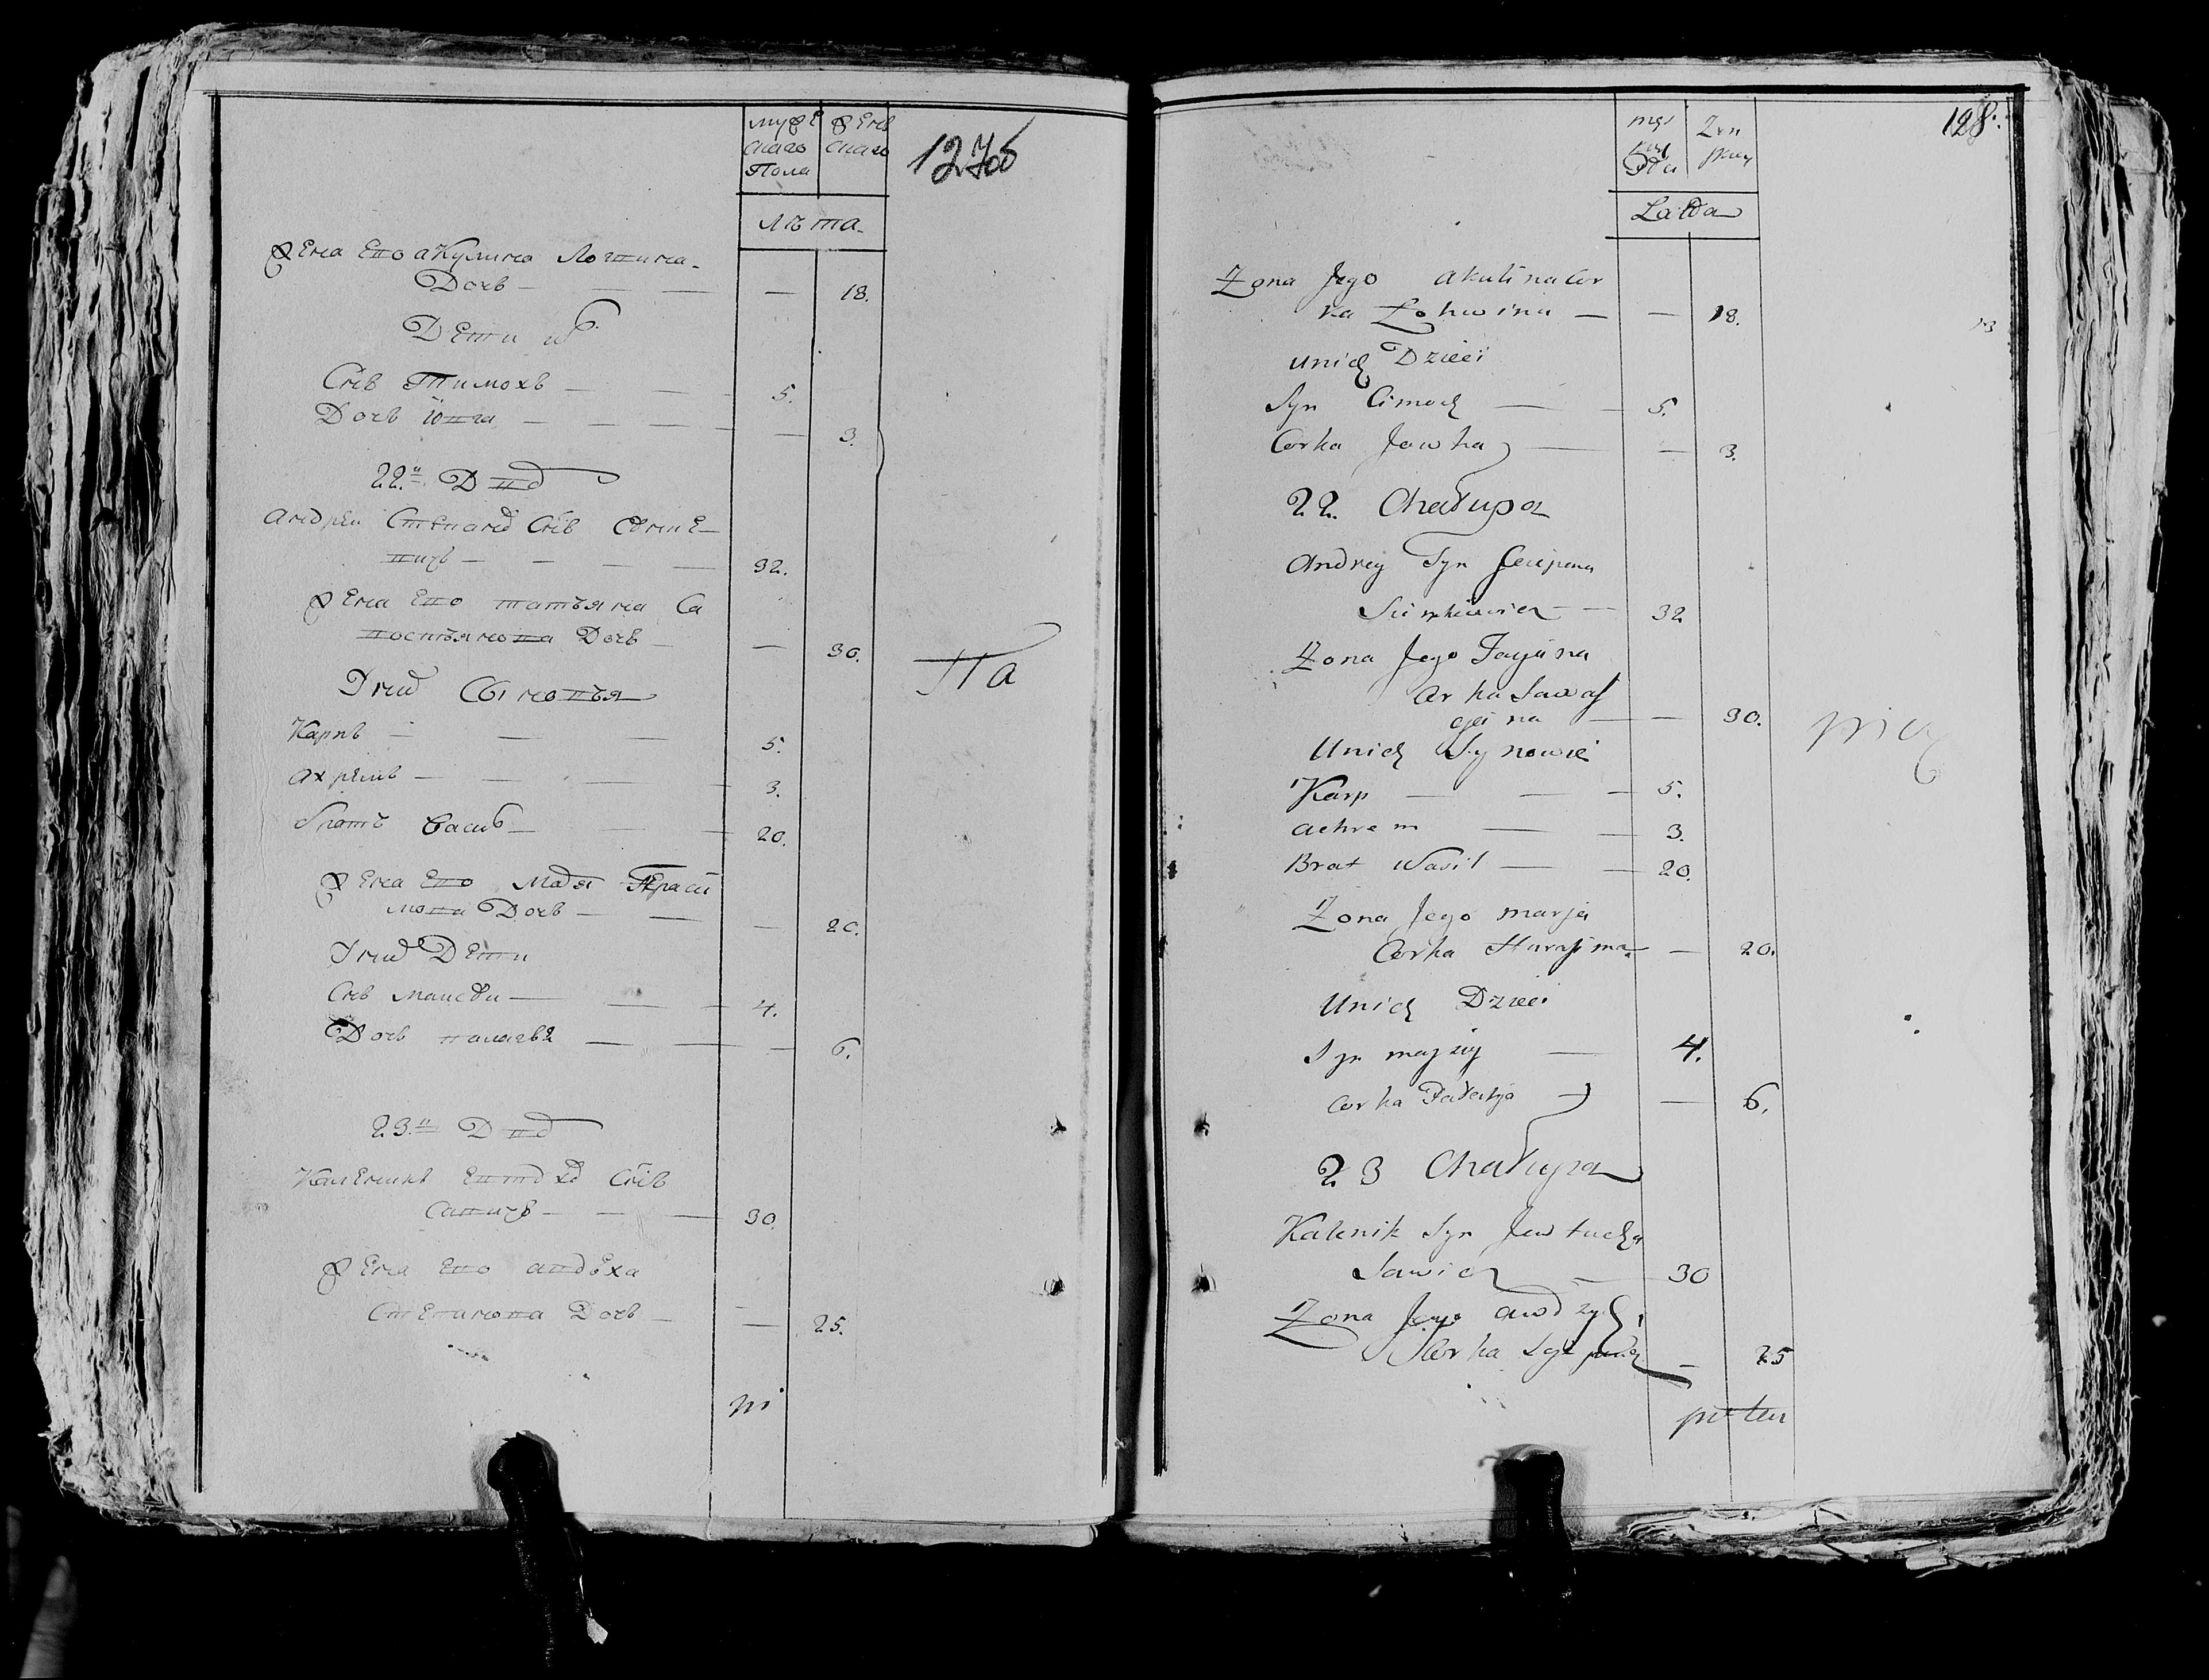 муже
скаго
Пола
женс
скаго
127об
лѣта
жена Его акулина Логвина
Дочь — 18.
Дети их
Снъ Тимохъ — 5.
Дочь Ювга — 3.
22.й Двор
андрей Степанов Снъ
32.
жена Его татьяна Са
востьянова Дочь — 30.
У них Сыновья
На
Карпъ — 5.
ахремъ — 3.
братъ Васил — 20.
жена Его Марья Гераси
мова Дочь — 20.
У них Дети
Снъ Мансей — 4.
Дочь палагея — 6.
23.й Двор
Каленикъ Евтухов Снъ
Савичъ — 30.
жена Его авдоха
Степанова Дочь — 25.
128.
męs
kiey
Płci
Zen
skiey
Latta
Zona Jego akulina Cor
ka Łohwina — 18.
13
unich Dzieci
Syn Cimoch — 5.
Corka Jewha — 3.
22. Chałupa
Andrey Syn Sciepana
32
Zona Jego Taciana
Corka Sawas
cjana — 30.
Unich Synowie
Karp — 5.
achrem — 3.
Brat Wasil — 20.
Zona Jego marja
Corka Harasima — 20.
Unich Dzieci
Syn majsiey — 4.
Corka Pałahja — 6.
23 Chałupa
Kalenik Syn Jewtucha
Sawicz — 30
Zona Jego
Corka Sciepana — 25